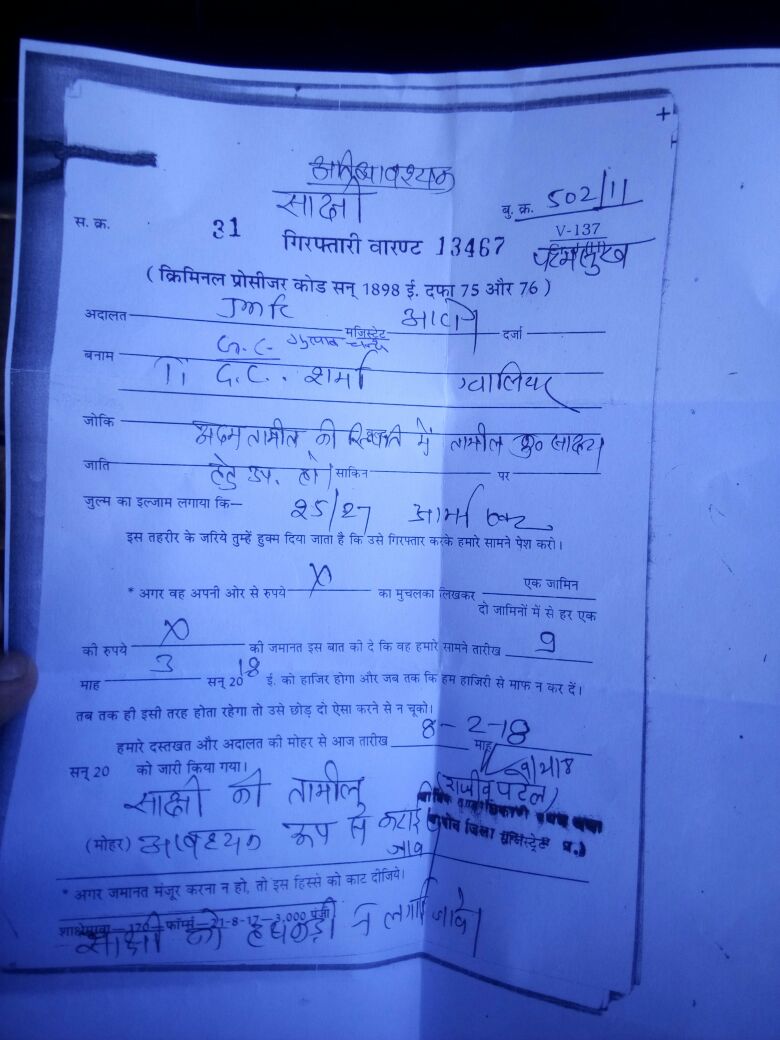 साक्षी
बु. क्र. 502/11
स. क्र. 31
V-137
गिरफ्तारी वारण्ट 13467
(क्रिमिनल प्रोसीजर कोड सन् 1898 ई. दफा 75 और 76)
अदालत मजिस्ट्रेट दर्जा
बनाम
शर्मा ग्वालियर
जोकि अदम तामील की स्थिति में तामील कु० साक्ष्य
जाति हेतु उप. हो। साकिन पर
जुल्म का इल्जाम लगाया कि— 25/27 आर्म्स एक्ट
इस तहरीर के जरिये तुम्हें हुक्म दिया जाता है कि उसे गिरफ्तार करके हमारे सामने पेश करो।
* अगर वह अपनी ओर से रुपये X का मुचलका लिखकर एक जामिन
दो जामिनों में से हर एक
की रुपये X की जमानत इस बात की दे कि वह हमारे सामने तारीख 9
माह 3 सन् 2018 ई. को हाजिर होगा और जब तक कि हम हाजिरी से माफ न कर दें।
तब तक ही इसी तरह होता रहेगा तो उसे छोड़ दो ऐसा करने से न चूको।
हमारे दस्तखत और अदालत की मोहर से आज तारीख 8-2-18 माह
सन् 20 को जारी किया गया।
(राजीव पटेल)
साक्षी की तामील
(मोहर) आवश्यक रूप से कराई
जावे
* अगर जमानत मंजूर करना न हो, तो इस हिस्से को काट दीजिये।
फॉर्म्स—21-8-17—3,000
साक्षी को हथकड़ी न लगाई जावे।